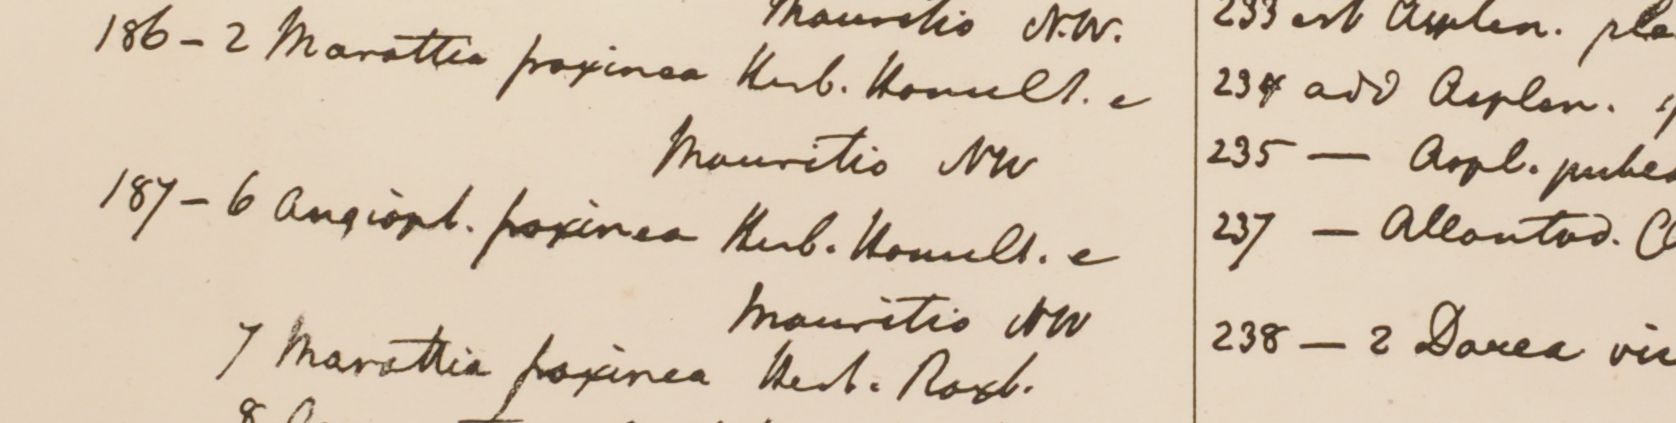 Mauritio N.W.
186 - 2 Marattia fraxinea Herb. Hamilt. e
Mauritio NW
187 - 6 Angiopt. fraxinea Herb. Hamilt. e
Mauritio NW
7 Marattia fraxinea Herb. Roxb.
8
233 est Asplen.
234 add Asplen.
235 — Aspl. pubes
237 — Allantod.
238 — 2 Darea